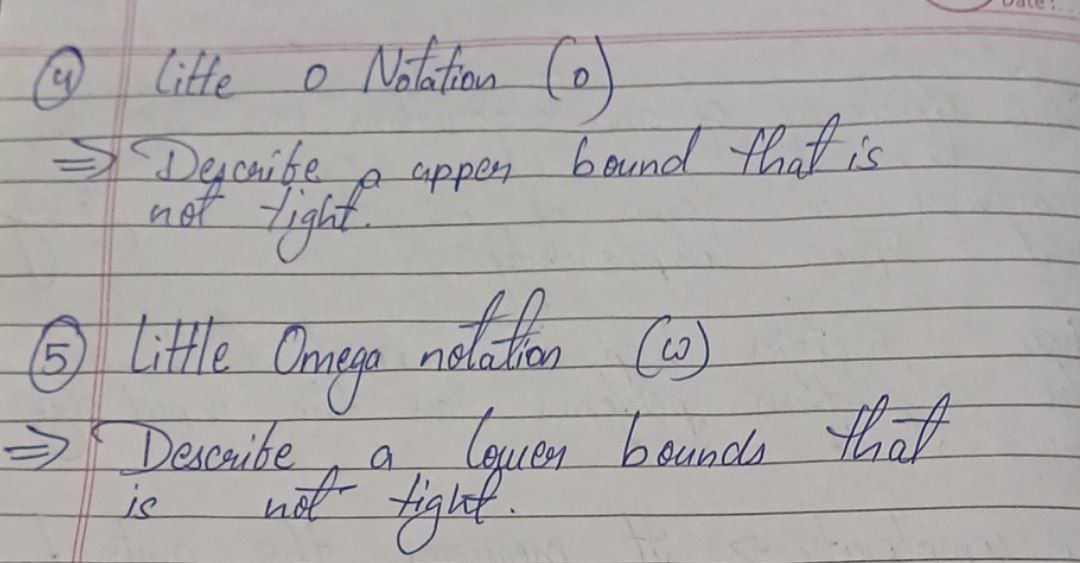 ④ Litte o Notation (o)
⇒ Describe a upper bound that is
not tight.
⑤ Little Omega notation (ω)
⇒ Describe a lower bounds that
is not tight.